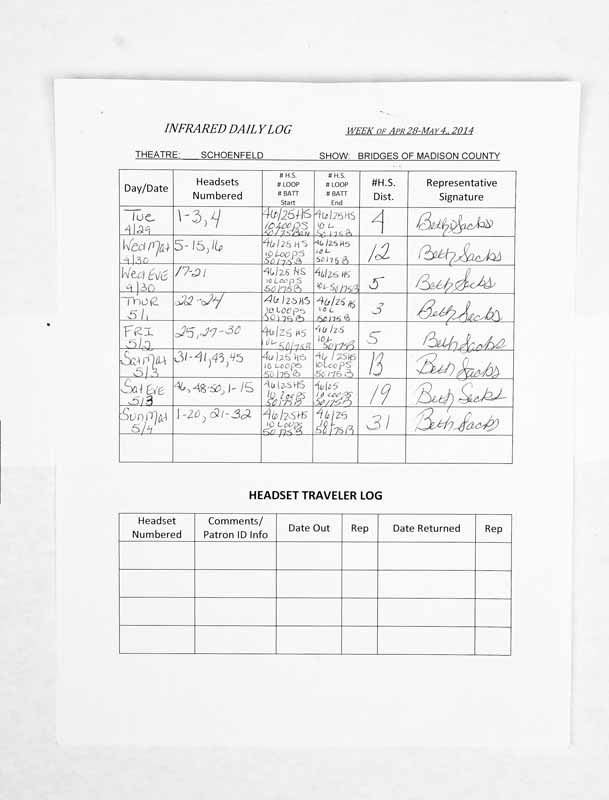 INFRARED DAILY LOG
WEEK OF APR 28-MAY 4, 2014
THEATRE: SCHOENFELD SHOW: BRIDGES OF MADISON COUNTY
Day/Date
Headsets Numbered
# H.S. # LOOP # BATT Start
# H.S. # LOOP # BATT End
#H.S. Dist.
Representative Signature
Tue 4/29
1-3, 4
46/25 HS 10 LOOPS
46/25 HS 10 L 50/75 B
4
Beth Sacks
Wed Mat 4/30
5-15, 16
46/25 HS 10 LOOPS 50/75 B
46/25 HS 10 L 50/75 B
12
Beth Sacks
Wed Eve 4/30
17-21
46/25 HS 10 LOOPS 50/75 B
46/25 HS 10 L 50/75 B
5
Beth Sacks
THUR 5/1
22-24
46/25 HS 10 LOOPS 50/75 B
46/25 HS 10 L 50/75 B
3
Beth Sacks
FRI 5/2
25, 27-30
46/25 HS 10 L 50/75 B
46/25 10 L 50/75 B
5
Beth Sacks
Sat Mat 5/3
31-41, 43, 45
46/25 HS 10 LOOPS 50/75 B
46/25 HS 10 LOOPS 50/75 B
13
Beth Sacks
Sat Eve 5/3
46, 48-50, 1-15
46/25 HS 10 LOOPS 50/75 B
46/25 10 LOOPS 50/75 B
19
Beth Sacks
Sun Mat 5/4
1-20, 21-32
46/25 HS 10 LOOPS 50/75 B
46/25 10 L 50/75 B
31
Beth Sacks
HEADSET TRAVELER LOG
Headset Numbered
Comments/ Patron ID Info
Date Out
Rep
Date Returned
Rep